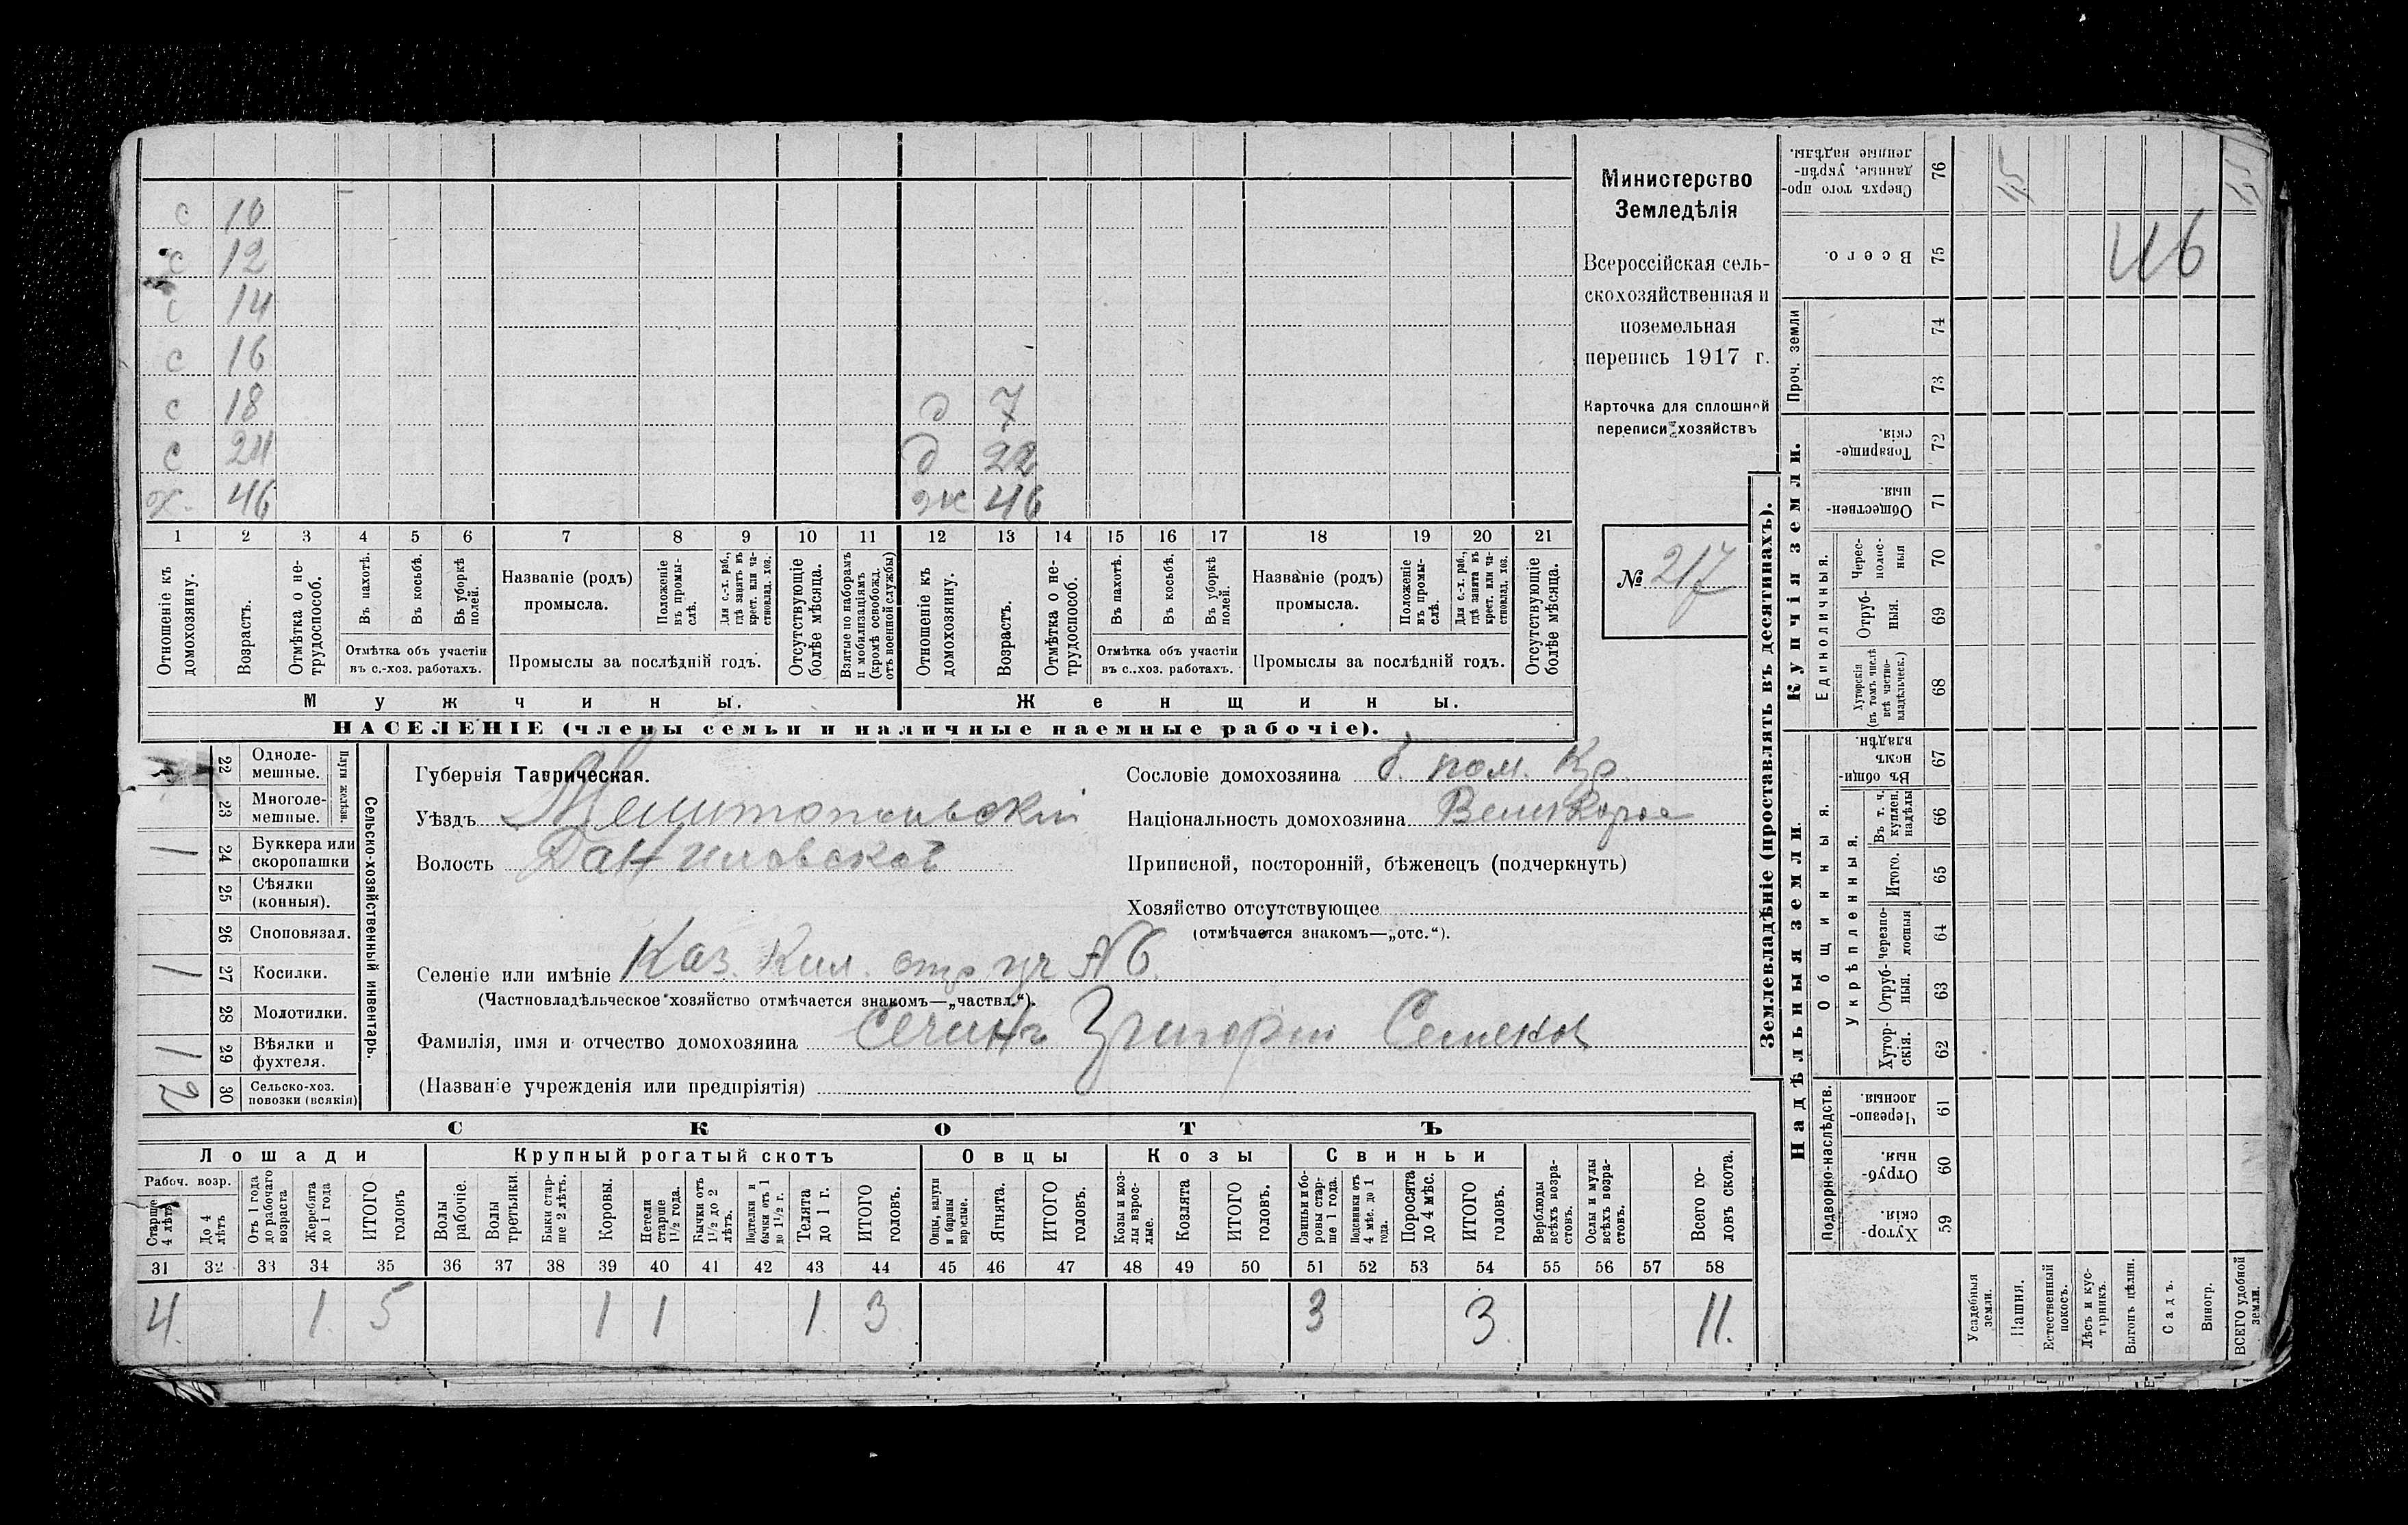 с 10
с 12
с 14
с 16
с 18 д 7
с 24 д 22
х. 46 ж 46
1 2 3 4 5 6 7 8 9 10 11 12 13 14 15 16 17 18 19 20 21
Отношеніе къ домохозяину.
Возрастъ.
Отмѣтка о нетрудоспособ.
Въ пахотѣ.
Въ косьбѣ.
Въ уборкѣ полей.
Отмѣтка объ участіи
въ с.-хоз. работахъ.
Названіе (родъ)
промысла.
Положеніе въ промыслѣ.
Для с.-х. раб., гдѣ занятъ въ крест. или частновлад. хоз.
Промыслы за послѣдній годъ.
Отсутствующіе болѣе мѣсяца.
Взятые по наборамъ и мобилизаціямъ (кромѣ освобожд. отъ военной службы)
Отношеніе къ домохозяину.
Возрастъ.
Отмѣтка о нетрудоспособ.
Въ пахотѣ.
Въ косьбѣ.
Въ уборкѣ полей.
Отмѣтка объ участіи
въ с..хоз. работахъ.
Названіе (родъ)
промысла.
Положеніе въ промыслѣ.
Для с.-х. раб., гдѣ занята въ крест. или частновлад. хоз.
Промыслы за послѣдній годъ.
Отсутствующіе болѣе мѣсяца.
Мужчины. Женщины.
НАСЕЛЕНІЕ (члены семьи и наличные наемные рабочіе).
Министерство
Земледѣлія
Всероссійская сель-
скохозяйственная и
поземельная
перепись 1917 г.
Карточка для сплошной
переписи хозяйствъ
№ 217
Сельско-хозяйственный инвентарь.
Плуги желѣзн.
22 Одноле-
мешные.
23 Многоле-
мешные.
1 24 Буккера или
скоропашки
25 Сѣялки
(конныя).
26 Сноповязал.
1 27 Косилки.
28 Молотилки.
1 29 Вѣялки и
фухтеля.
2 30 Сельско-хоз.
повозки (всякія)
Губернія Таврическая.
Уѣздъ Мелитопольскій
Волость Даниловской
Сословіе домохозяина б. пом. Кр.
Національность домохозяина Великорос
Приписной, посторонній, бѣженецъ (подчеркнуть)
Хозяйство отсутствующее
(отмѣчается знакомъ—„отс.“).
Селеніе или имѣніе Каз. уч № 6
(Частновладѣльческое хозяйство отмѣчается знакомъ—„частвл.“).
Фамилія, имя и отчество домохозяина Сечинъ Григорій Семенов
(Названіе учрежденія или предпріятія)
СКОТЪ
Лошади Крупный рогатый скотъ Овцы Козы Свиньи
Рабоч. возр.
Старше 4 лѣтъ
До 4 лѣтъ
Отъ 1 года до рабочаго возраста
Жеребята до 1 года
ИТОГО головъ
Волы рабочіе.
Волы третьяки.
Быки старше 2 лѣтъ.
Коровы.
Нетели старше 1½ года.
Бычки отъ 1½ до 2 лѣтъ.
Подтелки и бычки отъ 1 до 1½ г.
Телята до 1 г.
ИТОГО головъ.
Овцы, валухи и бараны взрослые.
Ягнята.
ИТОГО головъ.
Козы и козлы взрослые.
Козлята
ИТОГО головъ.
Свиньи и боровы старше 1 года.
Подсвинки отъ 4 мѣс. до 1 года.
Поросята до 4 мѣс.
ИТОГО головъ.
Верблюды всѣхъ возрастовъ.
Ослы и мулы всѣхъ возрастовъ.
Всего головъ скота.
31 32 33 34 35 36 37 38 39 40 41 42 43 44 45 46 47 48 49 50 51 52 53 54 55 56 57 58
4. 1. 5 1 1 1. 3 3 3. 11.
Землевладѣніе (проставлять въ десятинахъ).
Надѣльныя земли. Купчія земли.
Подворно-наслѣдств.
Общинныя.
Укрѣпленныя.
Единоличныя.
Проч. земли
Хуторскія. 59
Отрубныя. 60
Черезполосныя. 61
Хуторскія. 62
Отрубныя. 63
Черезполосныя 64
Итого. 65
Въ т. ч. куплен. надѣлы 66
Въ общинномъ владѣн. 67
Хуторскія (въ томъ числѣ всѣ частновладѣльческ.) 68
Отрубныя. 69
Череполосныя 70
Общественныя. 71
Товарищескія. 72
73
74
Всего. 75
Сверхъ того проданные, укрѣпленные надѣлы. 76
46
Усадебныя земли.
Пашня.
Естественный покосъ.
Лѣсъ и кустарникъ.
Выгонъ цѣлин.
Садъ.
Виногр.
ВСЕГО удобной земли.